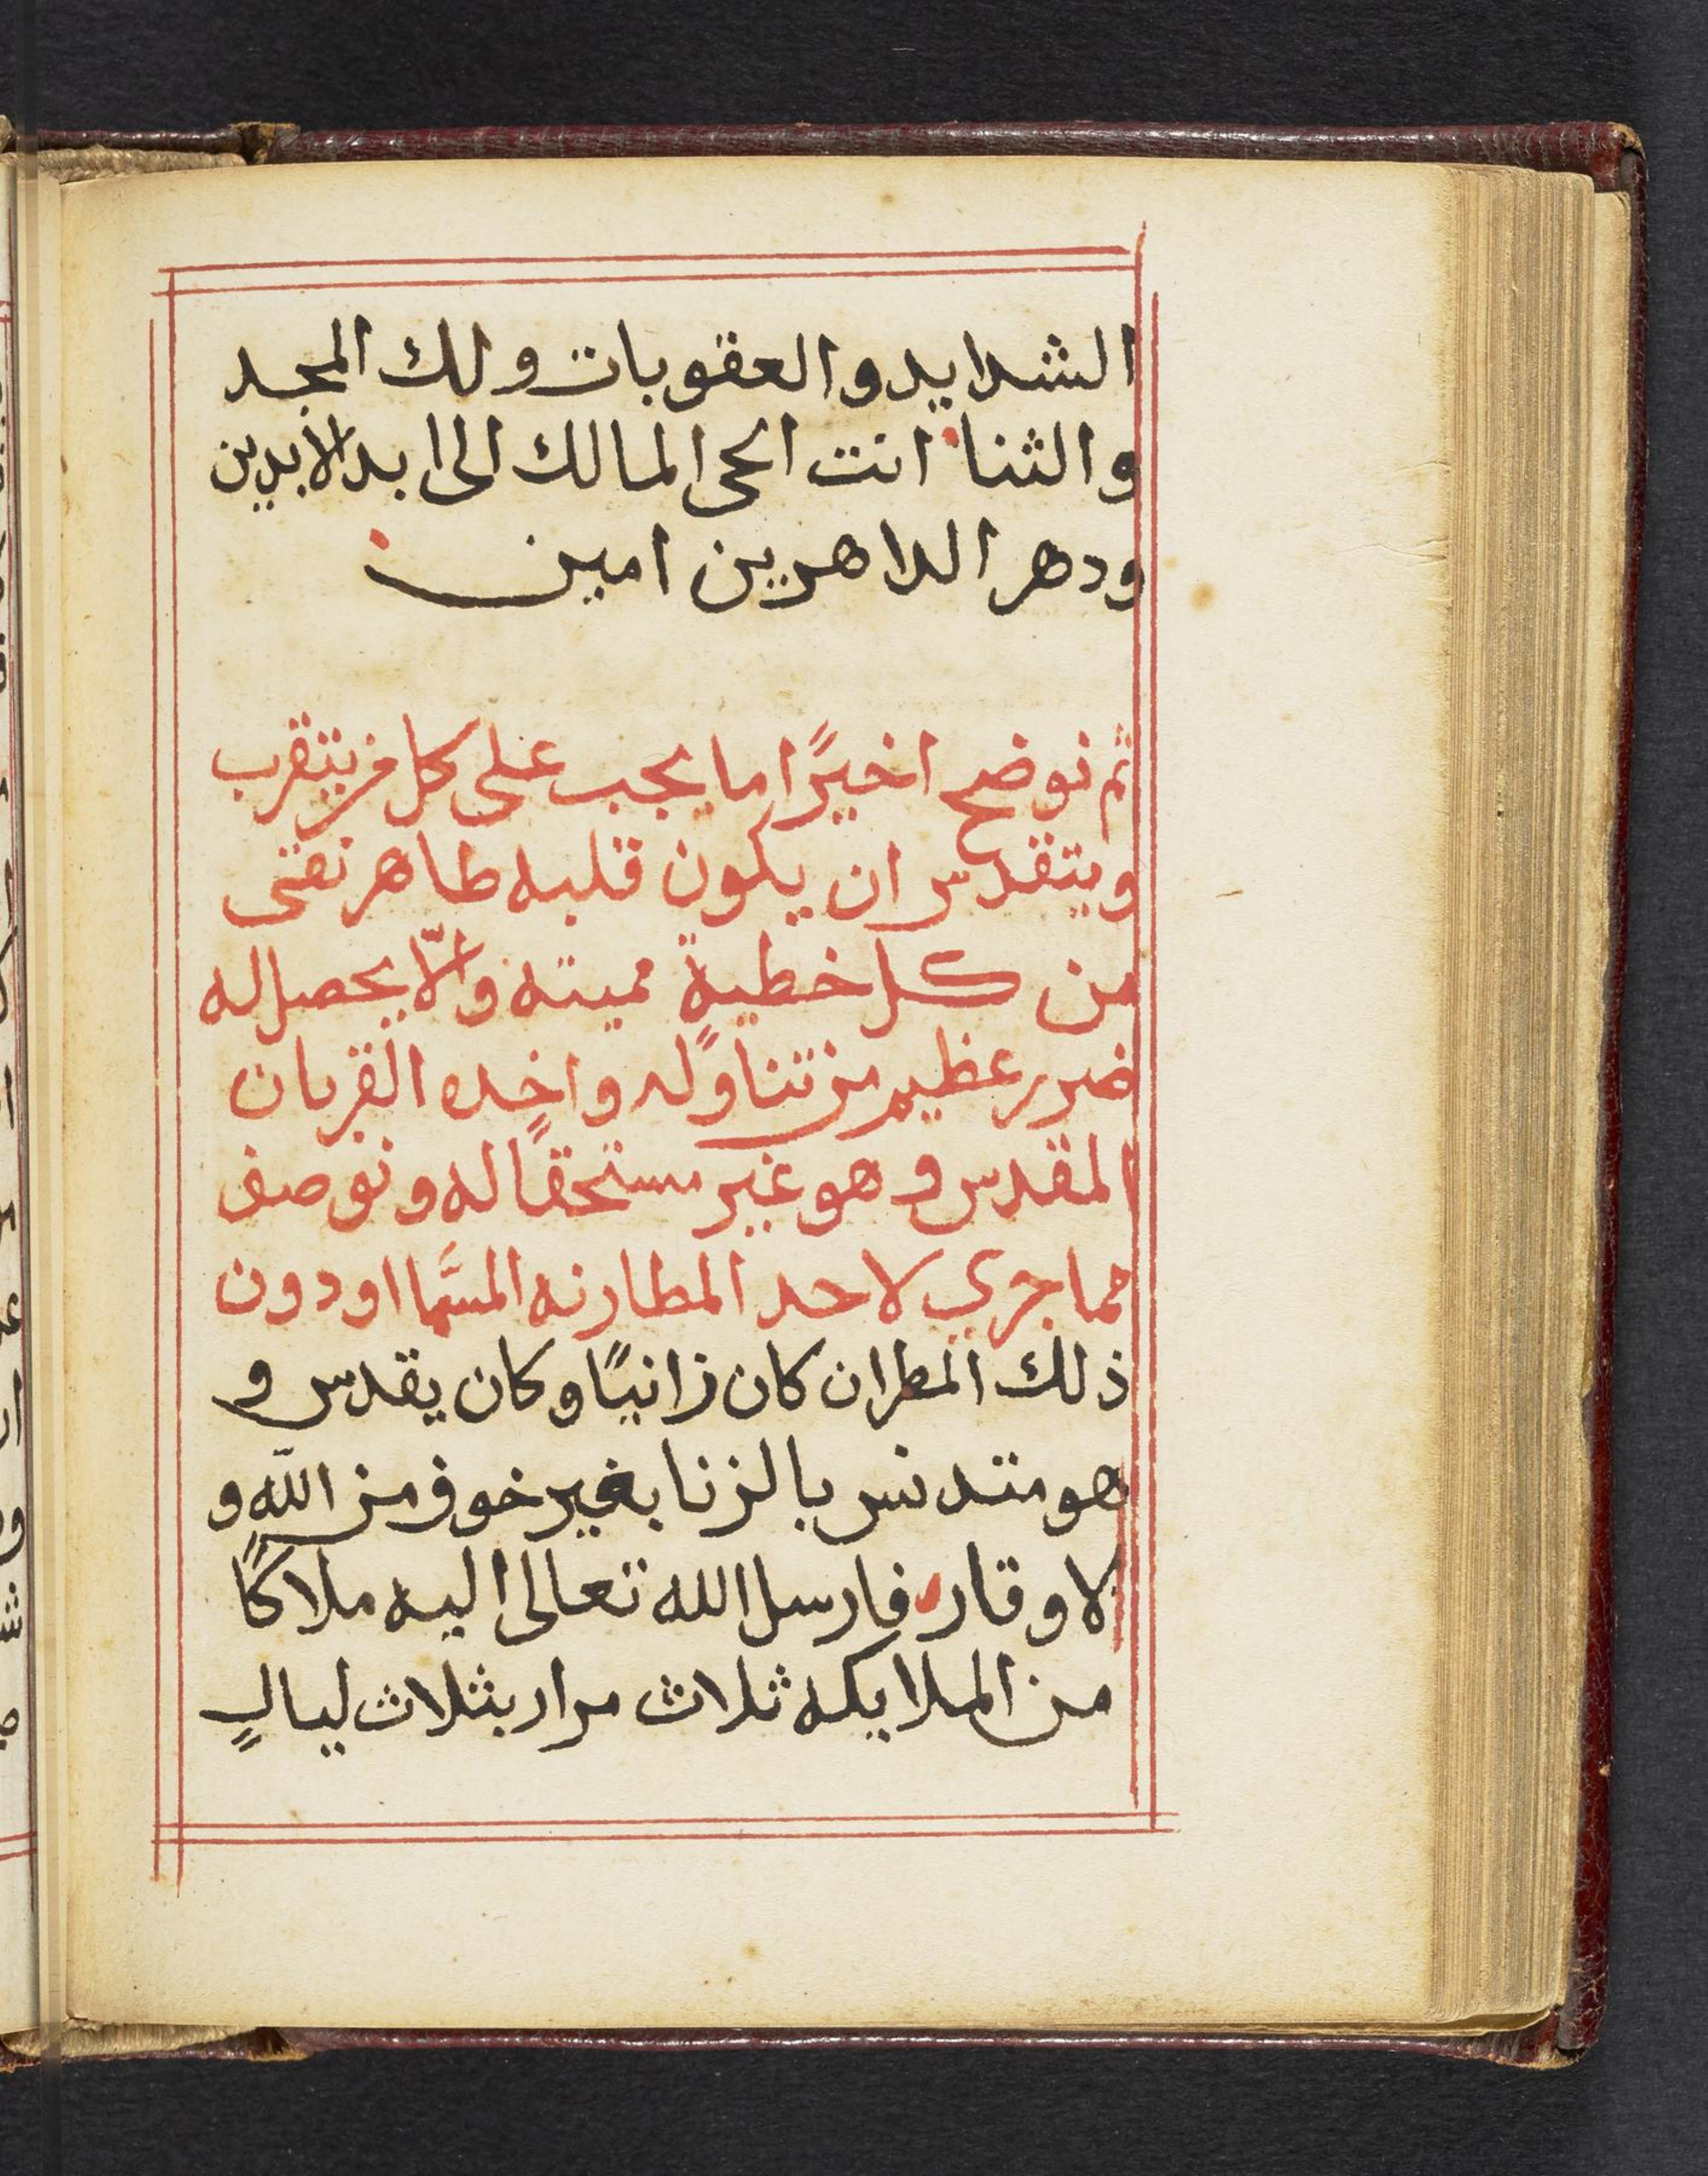 الشدايد والعقوبات ولك المجد
والثنا انت الحي المالك الى ابد الابدين
ودهر الداهرين امين
ثم نوضح اخيرًا ما يجب على كل من يتقرب
ويتقدس ان يكون قلبه طاهر نقى
من كل خطيةٍ مميته والّا يحصل له
ضرر عظيم من تناوله واخده القربان
المقدس وهو غير مستحقًا له ونوصف
مما جرى لاحد المطارنه المسَّما اودون
ذلك المطران كان زانيًا وكان يقدس و
هو متدنس بالزنا بغير خوف من الله و
لا وقار فارسل الله تعالى اليه ملاكًا
من الملايكه ثلاث مرار بثلاث ليالٍ